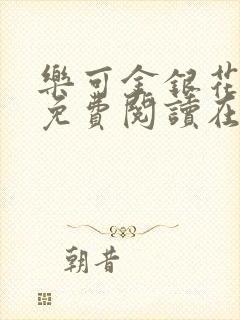 樂可金銀花
免費閱讀在
朝昔